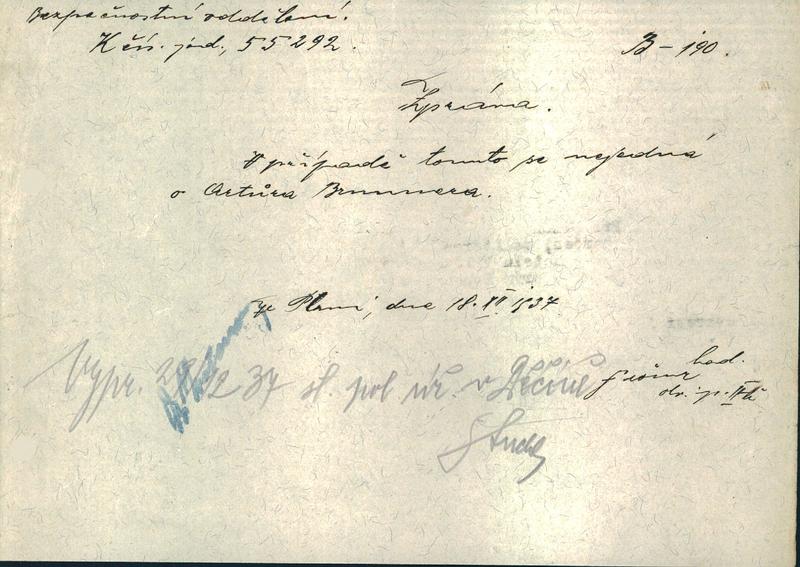 Bezpečnostní oddělení.
K čís. jed., 55292.
B-190.
Zpráva.
V případě tomto se nejedná
o Artůra Brunnera.
V Plzni, dne 18. XII 1937
Vypr. 29/12 37 st. pol úř. v Děčíně